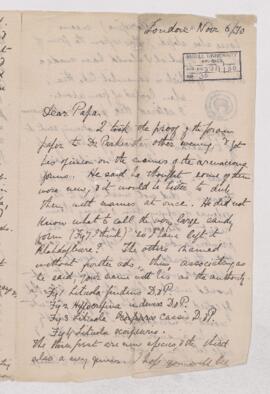 London Nov 6/80
McGILL UNIVERSITY
ARCHIVES
Dear Papa,
I took the proof of the foram
paper to Dr Parker the other evening, & got
his opinion on the names of the arenaceous
forms. He said he thought some of them
were new, & it would be better to dub
them with names at once. He did not
know what to call the very large sandy
form (Fig 7 I think) so I have left it
The others he named
without further ado, then associating as
he said, your name with his as the authority.
Fig 1 Lituola findens D & P.
Fig 2 Hyperammina D & P.
Fig 3 Lituola cassis D & P.
Fig 4 Lituola
The three first are new species & the third
also a new genus. I hope you will be